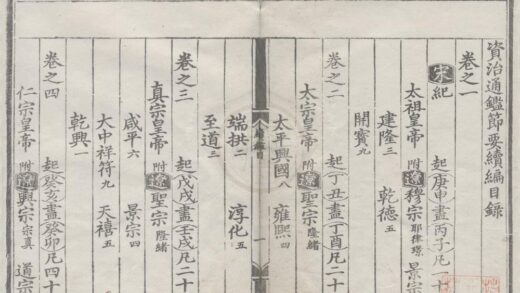 資治通鑑節要續編目錄
卷之一
宋紀 起庚申畫丙子凡一十
太祖皇帝 附遼穆宗耶律璟 景宗
建隆三 乾德五
開寶九
卷之二
太宗皇帝 起丁丑畫丁酉凡二十
附遼聖宗隆緒
太平興國八 雍熙四
端拱二 淳化五
至道三
卷之三
真宗皇帝 起戊戌畫壬戌凡二十
附遼聖宗隆緒
咸平六 景宗四
大中祥符九 天禧五
乾興一
卷之四
仁宗皇帝 起癸亥畫癸卯凡四十
附遼興宗宗真 道宗